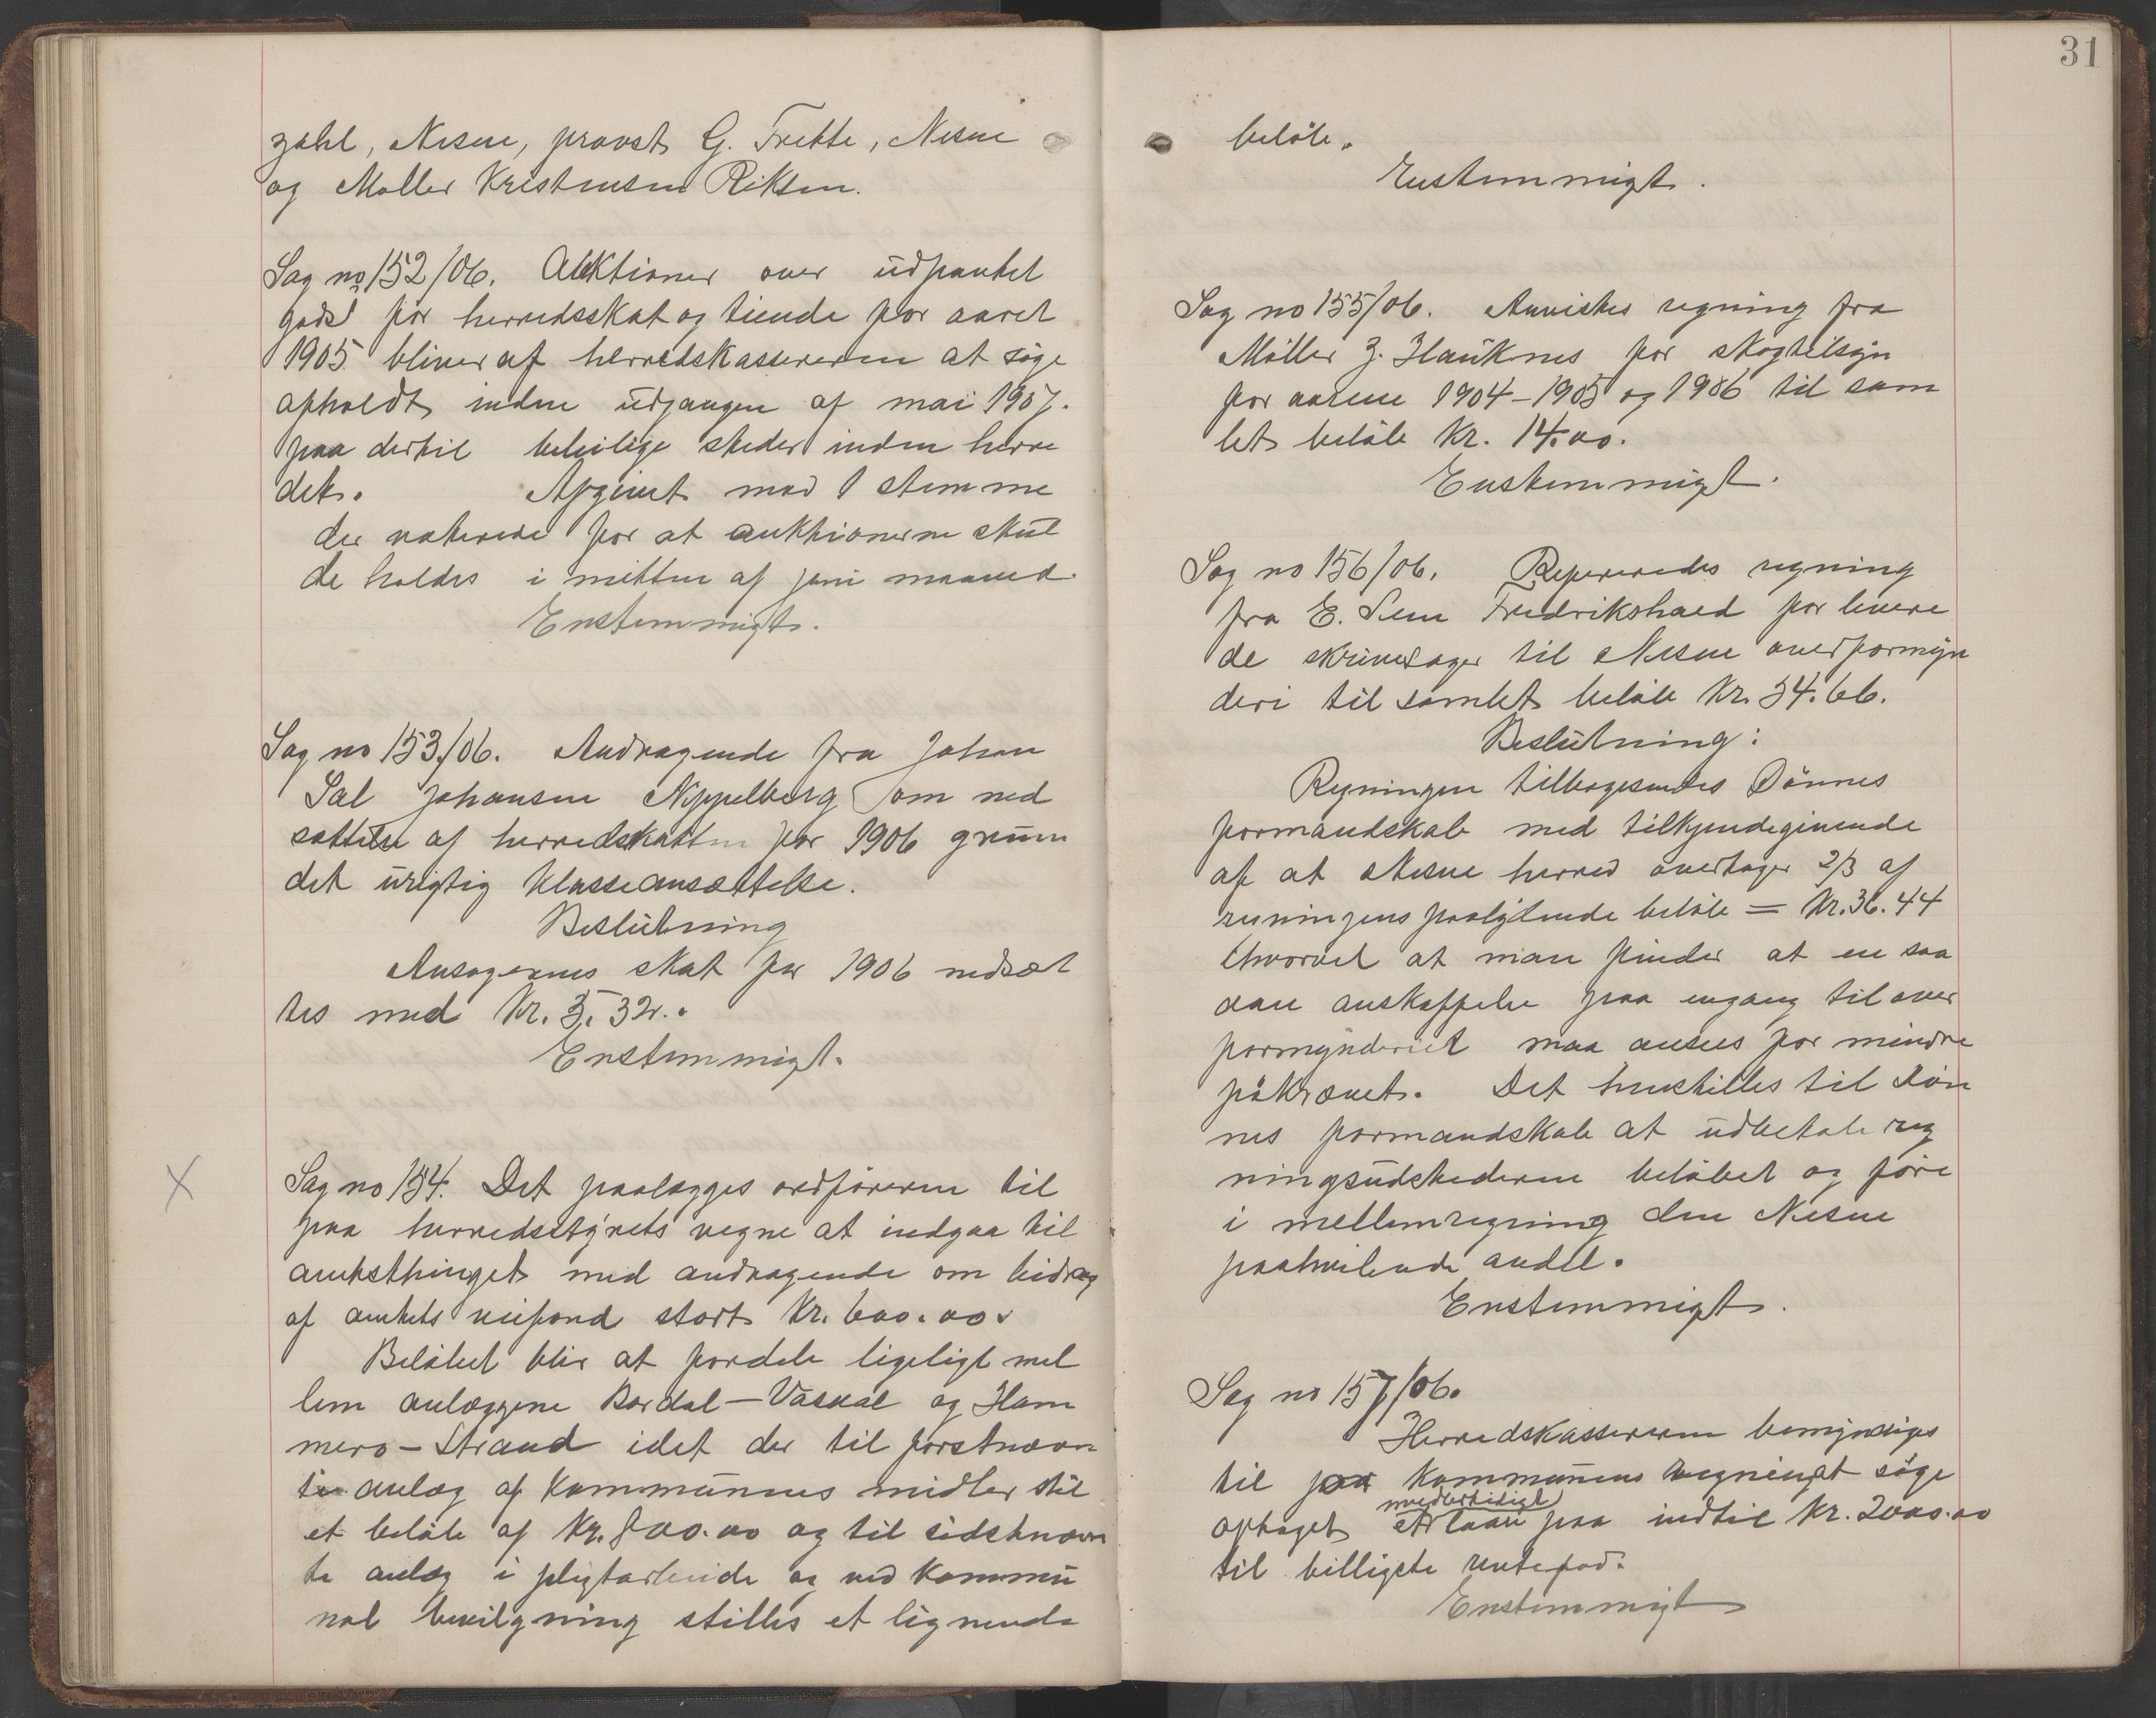 zahl, Nesne, provst G. Frette, Nesne
og Møller Kristensen Riksen.
Sag no 152/06. Auktioner over udpantet
gods for herredsskat og tiende for aaret
1905 bliver af herredskassereren at søge
afholdt inden udgangen af mai 1907.
paa dertil beleilige steder inden herre
det. Afgivet mod 1 stemme
der voterede for at auktionerne skul
de holdes i mitten af juni maaned.
Enstemmigt.
Sag no 153/06. Andragende fra Johan
Sal Johansen Nyppelberg om ned
sættelse af herredskatten for 1906 grun
det urigtig klasseansættelse.
Beslutning
Ansøgerens skat for 1906 nedsæt
tes med Kr. 5.32.
Enstemmigt.
X
Sag no 154. Det paalægges ordføreren til
paa herredsstyrets vegne at indgaa til
amtsthinget med andragende om bidrag
af amtets veifond stort Kr. 600.00.
Beløbet blir at fordele ligeligt mel
lem anlæggene Bardal – Vasdal og Ham
merø – Strand idet der til førstnævn
te anlæg af kommunens midler stil
et beløb af Kr. 800.00 og til sidstnævn
te anlæg i pligtarbeide og ved kommu
nal bevilgning stilles et lignende
31
beløb.
Enstemmigt.
Sag no 155/06. Anvistes regning fra
Møller Z. Hauknes for skogtilsyn
for aarene 1904–1905 og 1906 til sam
let beløb Kr. 14.00.
Enstemmigt.
Sag no 156/06. Refereredes regning
fra E. Sem Fredrikshald for levere
de skrivesager til Nesne overformyn
deri til samlet beløb Kr. 54.66.
Beslutning:
Regningen tilbagesendes Dønnes
formandskab med tilkjendegivende
af at Nesne herred overtager 2/3 af
regningens paalydende beløb = Kr. 36.44
hvorvel at man finder at en saa
dan anskaffelse paa engang til over
formynderiet maa ansees for mindre
påkrævet. Det henstilles til Døn
nes formandskab at udbetale reg
ningsudstederen beløbet og føre
i mellemregning den Nesne
paahvilende andel.
Enstemmigt.
Sag no 157/06.
Herredskassereren bemyndiges
til paa kommunens vegne at søge
midlertidigt
optaget et laan paa indtil Kr. 2000.00
til billigste rentefod.
Enstemmigt